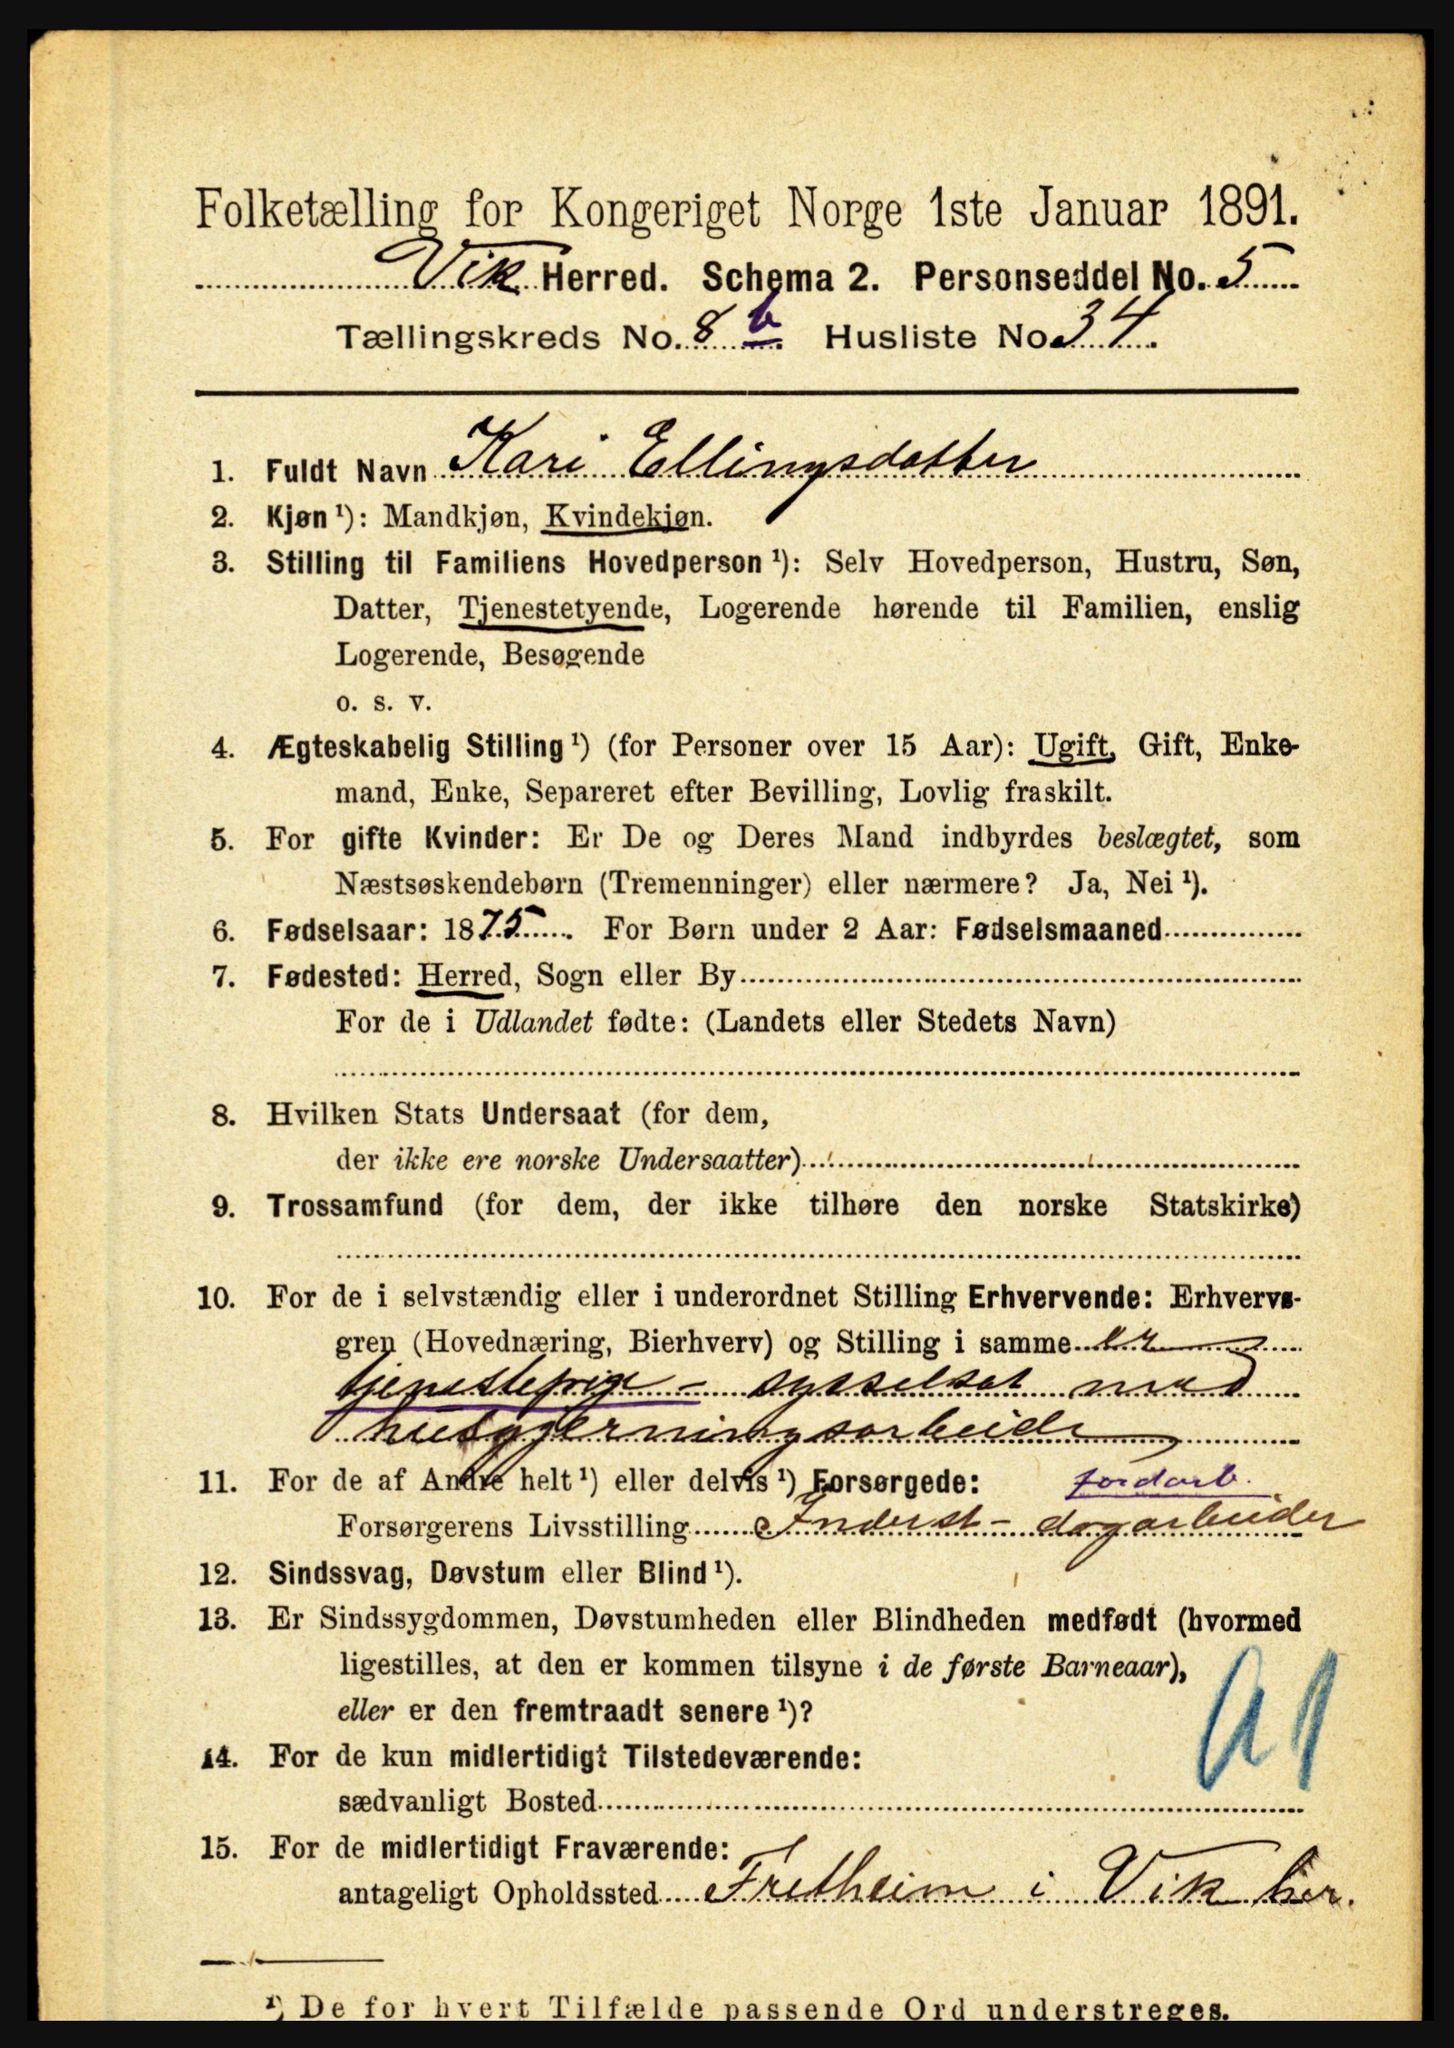 Folketælling for Kongeriget Norge 1ste Januar 1891.
Vik Herred. Schema 2. Personseddel No. 5
Tællingskreds No. 8 b. Husliste No. 34.
1. Fuldt Navn Kari Ellingsdatter
2. Kjøn ¹): Mandkjøn, Kvindekjøn.
3. Stilling til Familiens Hovedperson ¹): Selv Hovedperson, Hustru, Søn,
Datter, Tjenestetyende, Logerende hørende til Familien, enslig
Logerende, Besøgende
o. s. v.
4. Ægteskabelig Stilling ¹) (for Personer over 15 Aar): Ugift, Gift, Enke-
mand, Enke, Separeret efter Bevilling, Lovlig fraskilt.
5. For gifte Kvinder: Er De og Deres Mand indbyrdes beslægtet, som
Næstsøskendebørn (Tremenninger) eller nærmere? Ja, Nei ¹).
6. Fødselsaar: 1875. For Børn under 2 Aar: Fødselsmaaned
7. Fødested: Herred, Sogn eller By
For de i Udlandet fødte: (Landets eller Stedets Navn)
8. Hvilken Stats Undersaat (for dem,
der ikke ere norske Undersaatter)
9. Trossamfund (for dem, der ikke tilhøre den norske Statskirke)
10. For de i selvstændig eller i underordnet Stilling Erhvervende: Erhvervs-
gren (Hovednæring, Bierhverv) og Stilling i samme er
tjenestepige - sysselsat med
husgjerningsarbeide
11. For de af Andre helt ¹) eller delvis ¹) Forsørgede: jordarb.
Forsørgerens Livsstilling Inderst - dagarbeider
12. Sindssvag, Døvstum eller Blind ¹).
13. Er Sindssygdommen, Døvstumheden eller Blindheden medfødt (hvormed
ligestilles, at den er kommen tilsyne i de første Barneaar),
eller er den fremtraadt senere ¹)?
14. For de kun midlertidigt Tilstedeværende:
sædvanligt Bosted
15. For de midlertidigt Fraværende:
antageligt Opholdssted Fretheim i Vik her.
¹) De for hvert Tilfælde passende Ord understreges.